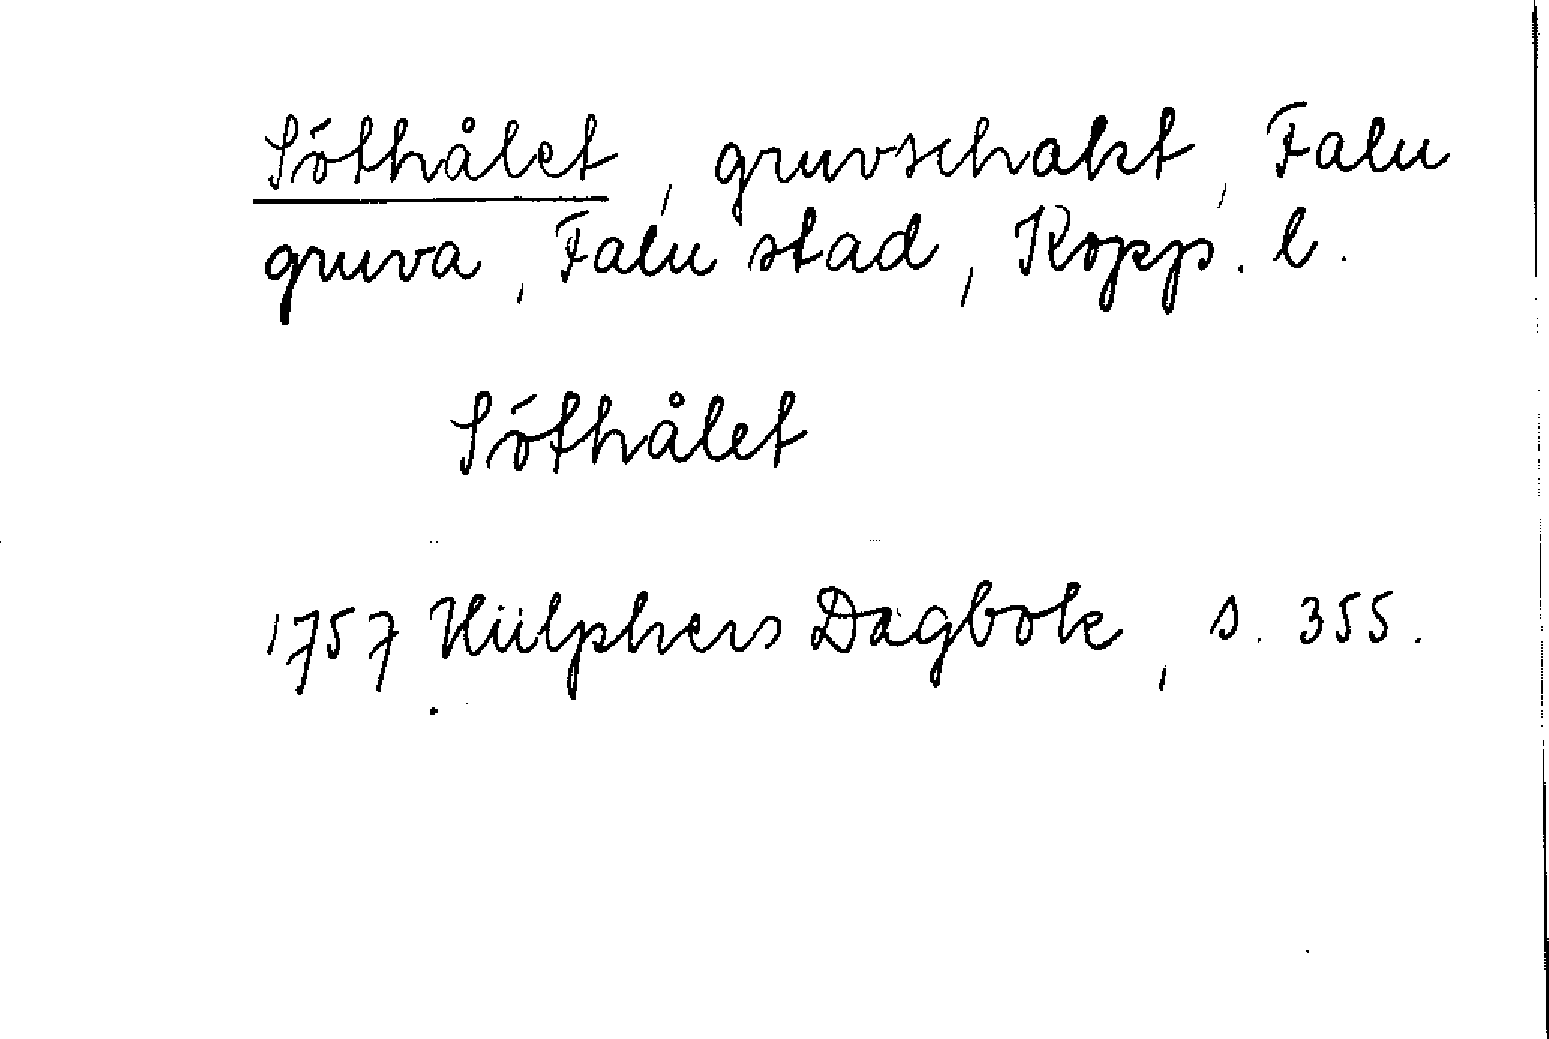 Söthålet, gruvschakt, Falu
gruva, Falu stad, Kopp. l.
Söthålet
1757 Hülphers Dagbok, s. 355.